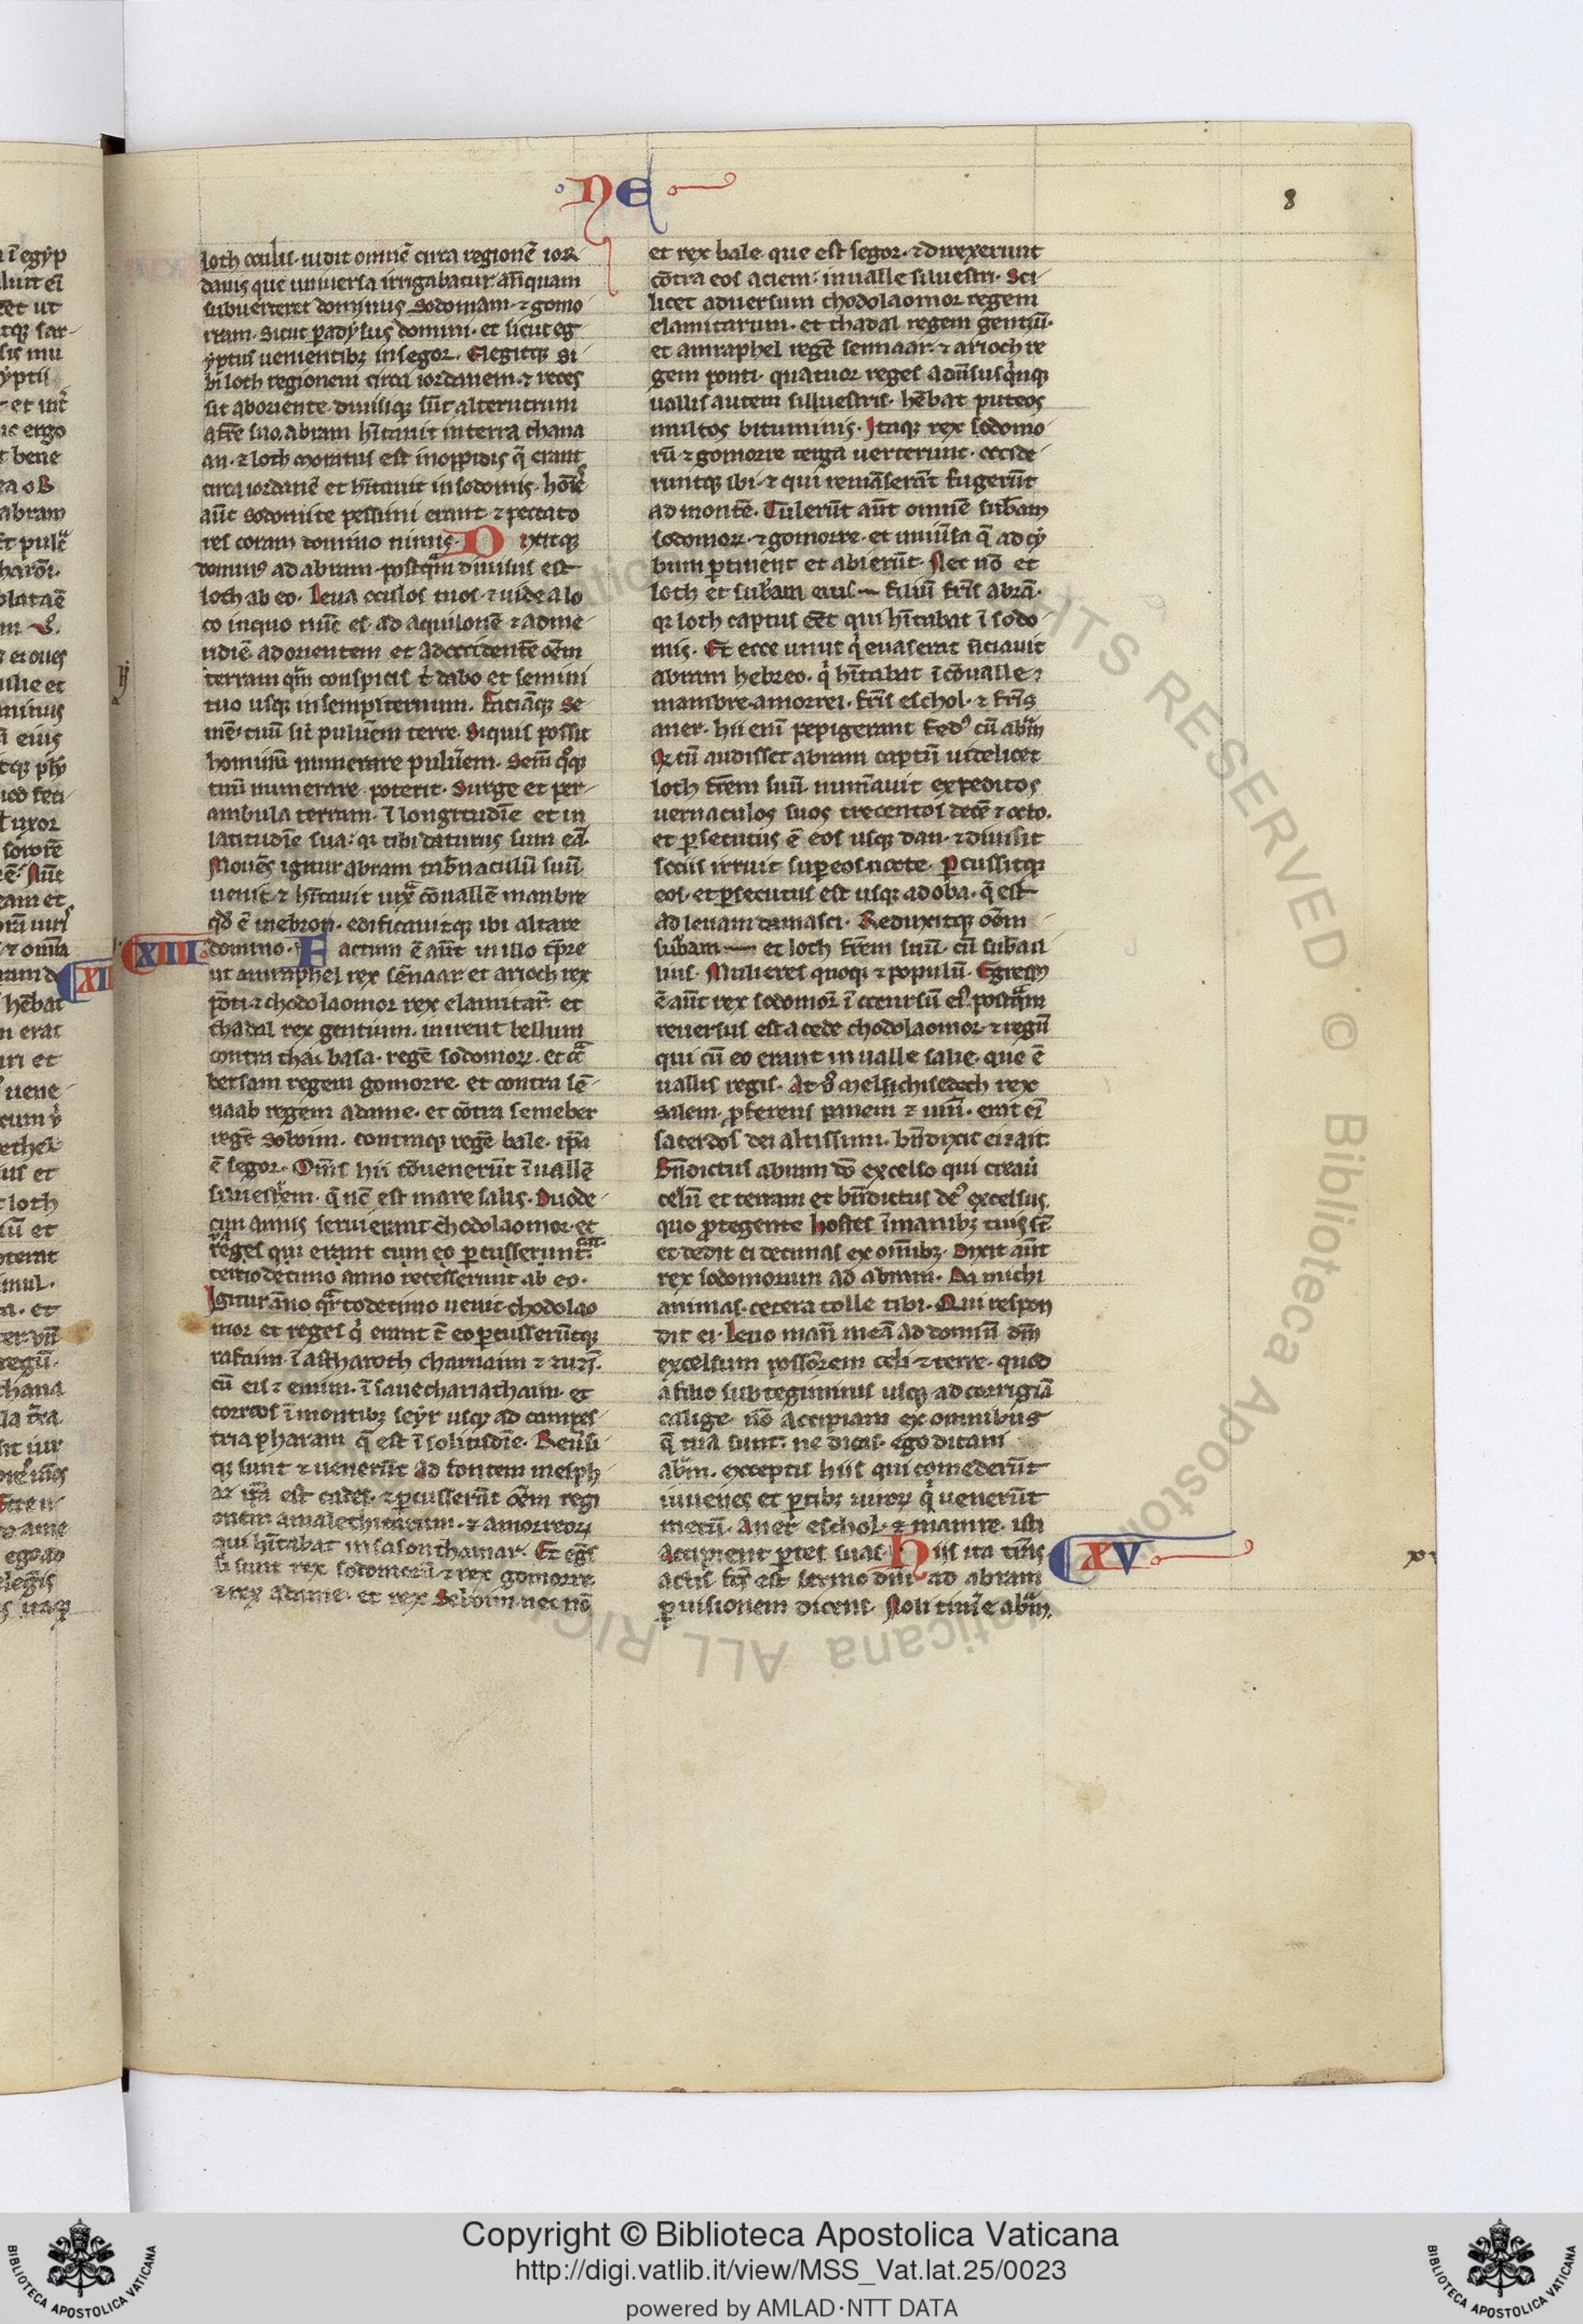 NE
8
loth oculis· uidit omnẽ circa regionẽ ior
danis que uniuersa irrigabatur añquam
subuerteret dominus sodomam· ⁊ gomo
rram· sicut padysus domini· et sicut eg
yptus uenientibꝫ in segor· Elegitqꝫ si
bi loth regionem circa iordanem· ⁊ reces
sit ab oriente· diuisiqꝫ sũt alterutrum
a fr̃e suo· abram hĩtauit in terra chana
an· ⁊ loth moratus est in oppidis q̃ erant
circa iordanẽ et hĩtauit in sodomis· hoĩes
aũt sodomite pessimi erant ⁊ peccato
res coram domino nimis· Dixitqꝫ
dominꝰ ad abram· postq̃m diuisus est
loth ab eo· leua oculos tuos· ⁊ uide a lo
co in quo nũc es· ad aquilonẽ ⁊ ad me
ridiẽ· ad orientem et ad occidentẽ· oẽm
terram qm̃ conspicis t̾ dabo et semini
tuo usqꝫ in sempiternum· faciãqꝫ se
mẽ tuũ sic̾ puluẽm terre· Siquis possit
hominũ numerare puluẽrem· semẽ q̊qꝫ
tuũ numerare poterit· Surge et per
ambula terram· ĩ longitudĩe et in
latitudĩe sua· qꝛ tibi daturus sum eã·
Mouẽs igitur abram tab̃naculũ suũ
uenit ⁊ hĩtauit iux̾ cõuallẽ manbre
qd̾ ẽ in ebron· edificauitqꝫ ibi altare
XIII domino· Factum ẽ aũt in illo tp̃re
ut amraphel rex sẽnaar· et arioch rex
põti· ⁊ chodolaomor rex elamitar̾ et
thadal rex gentium· inirent bellum
contra
bersam regem gomorre· et contra sẽ
naab regem adame· et cõtra semeber
regẽ seboim· contraqꝫ regẽ bale· ip̃a
ẽ segor· Om̃s hii cõuenerũt ĩ uallẽ
siluestrem· q̃ nũc est mare salis· Duode
cim annis seruierant chodolaomor· et
tertio decimo anno recesserunt ab eo·
Igitur ãno q̃rto decimo uenit chodolao
mor et reges q̾ erant cũ eo pcusserũtqꝫ
rafaim· ĩ astharoth charnaim ⁊ zuzĩ·
cũ eis ⁊ emim· ĩ saue chariathaim· et
correos ĩ montibꝫ seyr usqꝫ ad campes
tria pharam q̃ est ĩ solitudĩe· Reũsi
qꝫ sunt ⁊ uenerũt ad fontem mesph
at ip̃a est cades· ⁊ pcusserũt oẽm regi
onem amalechitarum· ⁊ amorreorꝝ
qui hĩtabat in sasonthamar· Et egr̃s
si sunt rex sodomorũ ⁊ rex gomorre
⁊ rex adame· et rex seboim· nec nõ
et rex bale· que est segor· ⁊ direxerunt
cõtra eos aciem· in ualle siluestri· Sci
licet aduersum chodolaomor regem
elamitarum· et thadal regem gentiũ·
et amraphel regẽ sennaar· ⁊ arioch re
gem ponti· quatuor reges adũsus q̾nqꝫ
uallis autem silluestris· hẽbat puteos
multos bituminis· Itaqꝫ rex sodomo
rũ ⁊ gomorre terga uerterunt· cecide
runtqꝫ ibi· ⁊ qui remãserãt fugerũt
ad montẽ· Tulerũt aũt omnẽ sub̃am
sodomorꝝ· ⁊ gomorre· et uniũsa q̃ ad cy
bum ptinent et abierũt· Nec nõ et
loth et sub̃am eius filiũ fr̃is abrã·
qꝛ loth captus eẽt qui hĩtabat ĩ sodo
mis· Et ecce unus q̾ euaserat nũciauit
abram hebreo· q̾ hĩtabat ĩ cõualle
mambre· amorrei· fr̃is eschol· ⁊ fr̃is
aner· hii enĩ pepigerant fedꝰ cũ abr̃m
Qꝛ cũ audisset abram captũ uidelicet
loth fr̃em suũ· num̾auit expeditos
uernaculos suos trecentos decẽ ⁊ octo·
et psecutus ẽ eos usqꝫ dan· ⁊ diuisit
sociis irruit sup eos nocte· pcussitqꝫ
eos· et psecutus est usqꝫ ad oba· q̃ est
ad leuam damasci· Reduxitqꝫ oẽm
sub̃am et loth fr̃em suũ· cũ sub̃an
lius· Mulieres quoqꝫ ⁊ populũ· Egressꝰ
ẽ aũt rex sodomor̾ ĩ occursũ eiꝰ postq̃m
reuersus est a cede chodolaomor· ⁊ regũ
qui cũ eo erant in ualle saue· que ẽ
uallis regis· At uͦ melsichisedech rex
salem· pferens panem ⁊ uinũ· erat eĩ
sacerdos dei altissimi· bñdixit ei ⁊ ait·
Bñdictus abram dõ excelso qui creauĩ
celũ et terram et bñdictus deꝰ excelsus·
quo ptegente hostes ĩ manibꝫ tuis sũt·
et dedit ei decimas ex omĩbꝫ· Dixit aũt
rex sodomorum ad abram· Da michi
animas· cetera tolle tibi· Qui respon
dit ei· leuo manũ meã ad dominũ dm̃
excelsum possõrem celi ⁊ terre· quod
a filio subtegiminis usqꝫ ad corrigiã
calige· nõ accipiam ex omnibus
q̃ tua sunt· ne dicas· ego ditaui
abr̃m· exceptis hiis qui comederũt
iuuenes et ptibꝫ uirorꝝ q̾ uenerũt
mecũ· Aner eschol· ⁊ mamre· isti
accipient ptes suas· Hiis ita trãs XV
actis fc̃s est sermo dñi ad abram
p uisionem dicens· Noli timere abr̃m·
Copyright © Biblioteca Apostolica Vaticana
http://digi.vatlib.it/view/MSS_Vat.lat.25/0023
powered by AMLAD·NTT DATA
BIBLIOTECA APOSTOLICA VATICANA
BIBLIOTECA APOSTOLICA VATICANA